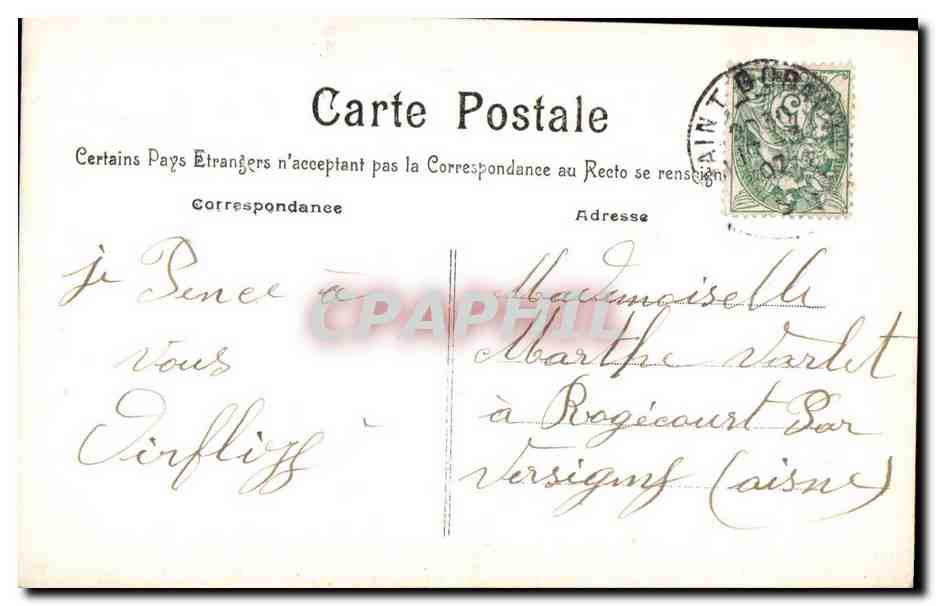 Carte Postale
Certains Pays Etrangers n'acceptant pas la Correspondance au Recto se renseign
Correspondance
Adresse
je Pence à
vous
Mademoiselle
Marthe Varlet
à Rogécourt Par
Versigny (aisne)
CPAPHIL
AINT GOBAIN
07